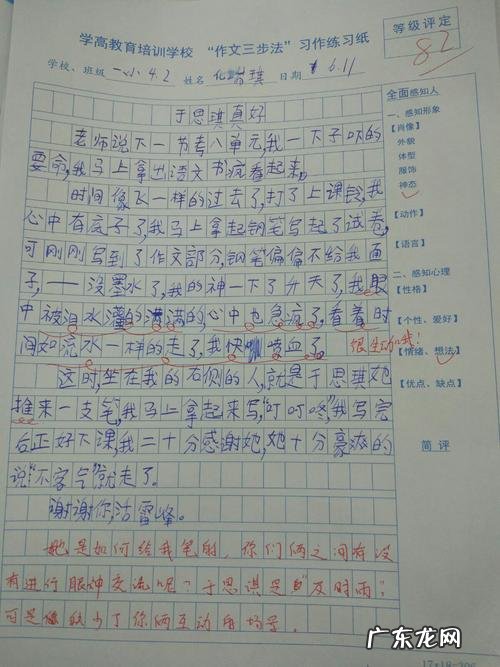 学高教育培训学校 “作文三步法”习作练习纸
等级评定
82
学校、班级 一小4.2 姓名 日期 6.11
于思琪真好
老师说下一节考八单元,我一下子吓的
要命,我马上拿出语文书疯看起来。
时间像飞一样的过去了,打了上课铃,我
心中有底子了,我马上拿起钢笔写起了试卷,
可刚刚写到了作文部分,钢笔偏偏不给我面
子,——没墨水了,我的神一下了升天了,我眼
中被泪水灌的满满的,心中也急疯了,看着时
间如流水一样的走了,我快喷血了。
很生动哦!
这时,坐在我的右侧的人,就是于思琪她
推来一支笔,我马上拿起来写,“叮叮咚,”我写完
后正好下课,我二十分感谢她,她十分豪爽的
说“不客气”就走了。
谢谢你,活雷峰。
她是如何给我笔的,你们俩之间有没
有进行眼神交流呢?于思琪是“及时雨”
可是像缺少了你俩互动的场景。
全面感知人
一、感知形象
【肖像】
外貌
体型
服饰
神态
【动作】
【语言】
二、感知心理
【性格】
【个性、爱好】
【情绪、想法】
【优点、缺点】
简 评
广东龙网